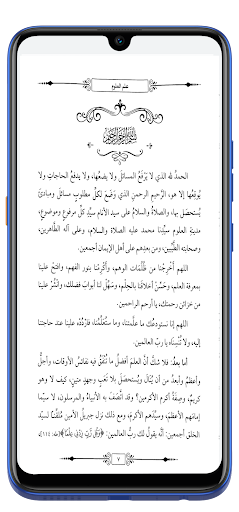 علم العلوم
بسم الله الرحمن الرحيم
الحمدُ لله الذي لا يَرْفَعُ المسائلَ ولا يضعُها، ولا يدفعُ الحاجاتِ ولا
يُوقِعُها إلا هو، الرَّحيمِ الرحمنِ الذي وَضَعَ لكلِّ مطلوبٍ مسائلَ ومبادئَ
يُستحصَلُ بها، والصلاةُ والسلامُ على سيد الأنام سيِّدِ كلِّ مرفوعٍ وموضوعٍ،
مدينةِ العلومِ سيِّدِنا محمد عليه الصلاة والسلام، وعلى آله الطَّاهرين،
وصحابتِه الطَّيِّبين، ومن بعدِهم على أهل الإيمان أجمعين.
اللهم أَخْرِجْنا من ظُلُمَاتِ الوهم، وأَكْرِمْنا بنور الفهم، وافتَحْ علينا
بمعرفة العلم، وحَسِّنْ أخلاقَنا بالحِلْم، وسَهِّلْ لنا أبوابَ فضلك، وانْشُرْ علينا
من خزائن رحمتك، يا أرحم الراحمين.
اللهم إنا نستودعُك ما علَّمتَنا، وما ستُعَلِّمُنا، فارْدُدْه علينا عند حاجتنا
إليه، ولا تُنْسِنَاه يا ربَّ العالمين.
أما بعدُ: فلا شكَّ أنَّ العلمَ أفضلُ ما تُنفَقُ فيه نفائسُ الأوقات، وأجلُّ
وأعظمُ وأبعدُ من أن يُنَالَ ويُستحصَلَ بلا تعبٍ وجهدٍ متينٍ، كيف لا وهو
كريمٌ، وصفةُ أكرمِ الأكرمين؟ وقد اتَّصَفَ به الأنبياءُ والمرسلون، لا سيَّما
إمامُهم الأعظمُ، وسيِّدُهم الأكرمُ، ومع ذلك نزل جبريلُ الأمين مُلَقِّنًا لسيِّد
الخلق أجمعين: أنه يقولُ لك ربُّ العالمين: ﴿وَقُل رَّبِّ زِدْنِي عِلْمًا﴾ [طه: ١١٤]،
٧